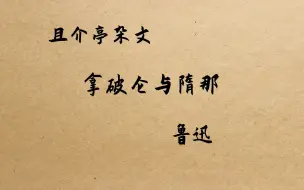 且介亭杂文
拿破仑与隋那
鲁迅